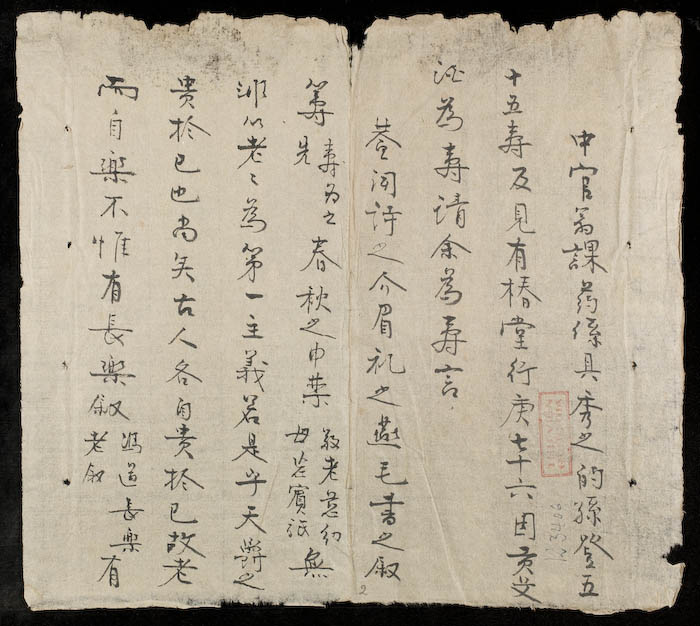 中官翁課药係具秀之的孫登五
十五寿及見有椿堂行庚七十六因貢父
為壽請余為壽言
蓋闻詩之介眉礼之燕毛書之叙
壽为之
先
春秋之申禁
敬老慈幼
毋忘賓旅
無
非以老〻為第一主義若是乎天爵之
贵於己也尚矣古人各自貴於己故老
而自樂不惟有長樂叙
馮道長樂
老叙
有
2